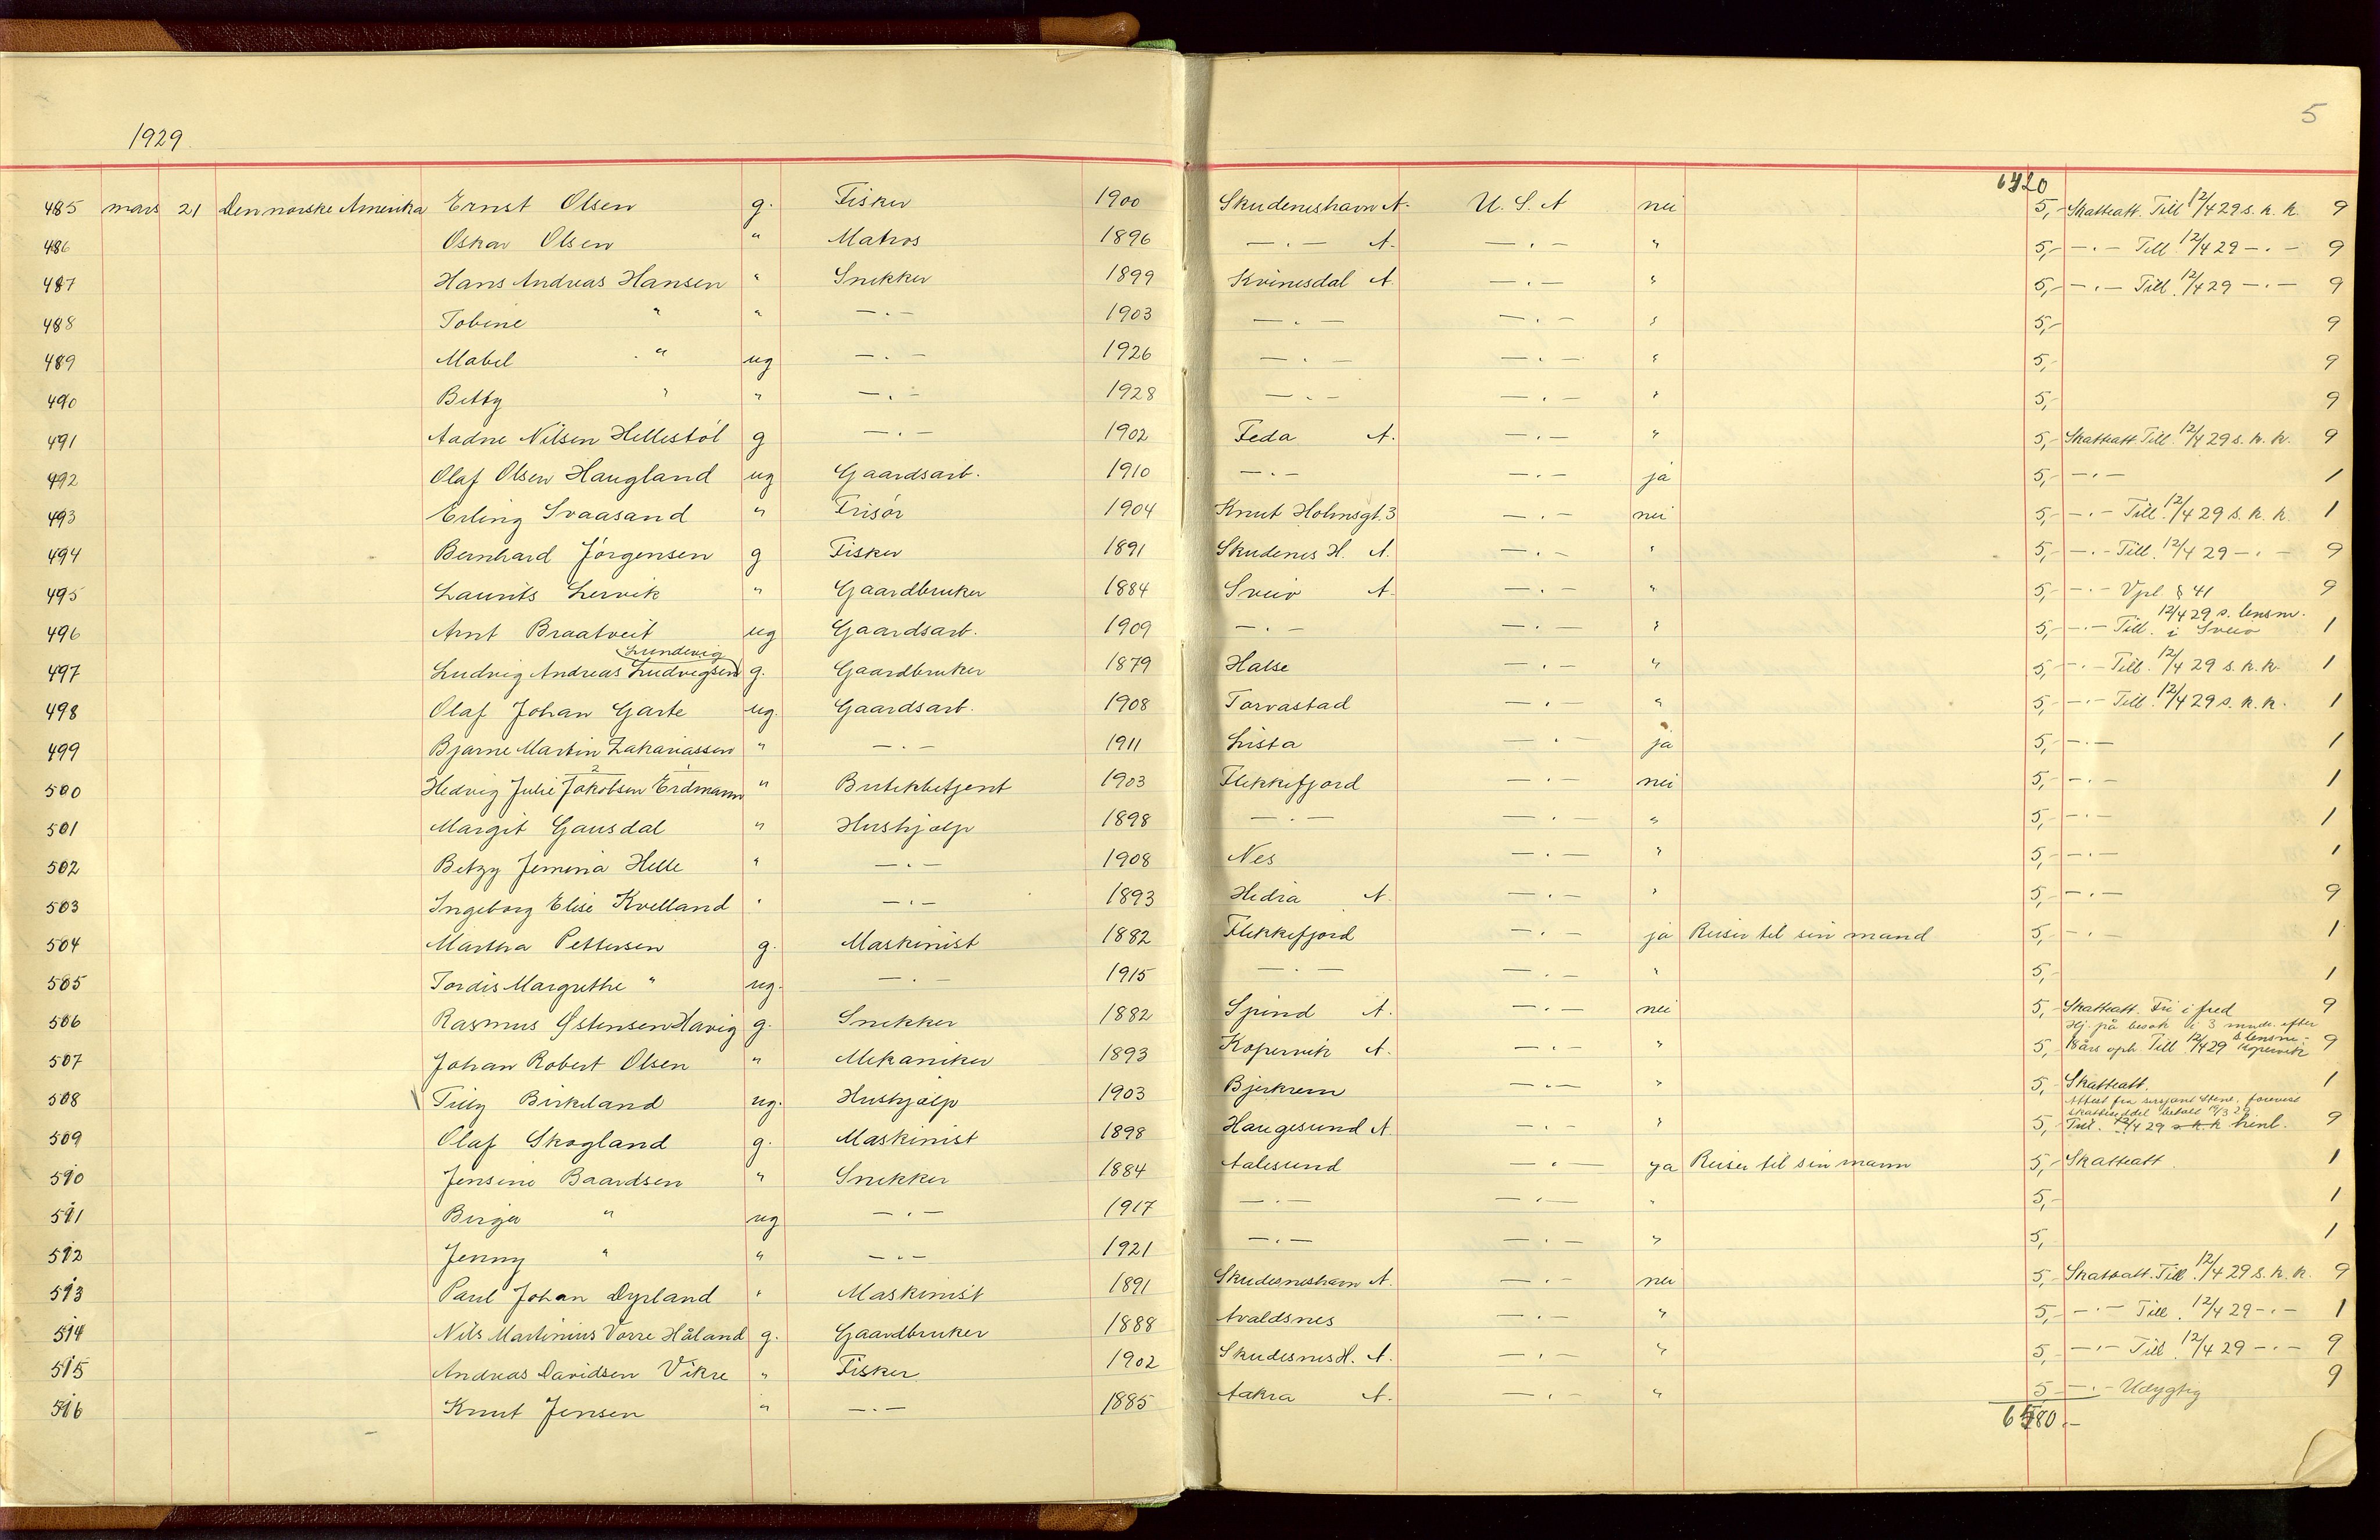 1929.
5
6420
485 mars 21 Den norske Amerika Ernst Olsen g. Fisker 1900 Skudeneshavn A. U. S. A nei 5,- Skatteatt. Till. 12/4 29 s. k. k. 9
486 Oskar Olsen " Matros 1896 —.— A. —.— " 5,- —.— Till. 12/4 29 —.— 9
487 Hans Andreas Hansen " Snekker 1899 Kvinesdal A. —.— " 5,- —.— Till. 12/4 29 —.— 9
488 Tobine " " —.— 1903 —.— —.— " 5,- 9
489 Mabel " ug —.— 1926 —.— —.— " 5,- 9
490 Betty " " —.— 1928 —.— —.— " 5,- 9
491 Aadne Nilsen Hellestöl g —.— 1902 Feda A. —.— " 5,- Skatteatt Till. 12/4 29 s. k. k. 9
492 Olaf Olsen Haugland ug Gaardsarb. 1910 —.— —.— ja 5,- —.— 1
493 Erling Svaasand " Frisör 1904 Knut Holmsgt. 3 —.— nei 5,- —.— Till. 12/4 29 s. k. k. 1
494 Bernhard Jörgensen g Fisker 1891 Skudenes H. A. —.— " 5,- —.— Till. 12/4 29 —.— 9
495 Laurits Lervik " Gaardbruker 1884 Sveio A. —.— " 5,- —.— Vpl § 41 9
496 Arnt Braatveit ug Gaardsarb. 1909 —.— —.— " 5,- —.— Till. 12/4 29 s. lensm. i Sveio 1
Lundevig
497 Ludvig Andreas Ludvigsen g. Gaardbruker 1879 Halse —.— " 5,- —.— Till. 12/4 29 s. k. k. 1
498 Olaf Johan Garte ug. Gaardsarb. 1908 Torvastad —.— " 5,- —.— Till. 12/4 29 s. k. k. 1
499 Bjarne Martin Zakariassen " —.— 1911 Lista —.— ja 5,- —.— 1
500 Hedvig Julie Jakobsen Erdmann " Butikkbetjent 1903 Flekkefjord —.— nei 5,- —.— 1
501 Margit Gausdal " Hushjælp 1898 —.— —.— " 5,- —.— 1
502 Betzy Jemima Helle " —.— 1908 Nes —.— " 5,- —.— 1
503 Ingeborg Elise Kvelland " —.— 1893 Hidra A. —.— " 5,- —.— 9
504 Martha Pettersen g. Maskinist 1882 Flekkefjord —.— ja Reiser til sin mand 5,- —.— 1
505 Tordis Margrethe " ug. —.— 1915 —.— —.— " 5,- 1
506 Rasmus Östensen Havig g. Snekker 1882 Spind A. —.— nei 5,- Skatteatt. Fri i fred 9
Hj. på besøk i 3 mndr. efter
507 Johan Robert Olsen " Mekaniker 1893 Kopervik A. —.— " 5,- 18 års oph. Till 12/4 29 s lensm. Kopervik 9
508 Tilly Birkeland ug. Hushjælp 1903 Bjerkrem —.— " 5,- Skatteatt. 1
Attest fra sersjant Stene, forevist
skatteseddel betalt 19/3 29
509 Olaf Skogland g. Maskinist 1898 Haugesund A. —.— " 5,- Till. 12/4 29 s. k. k henl. 9
510 Jensine Baardsen " Snekker 1884 Aalesund —.— ja Reiser til sin mann 5,- Skatteatt. 1
511 Birger " ug —.— 1917 —.— —.— " 5,- 1
512 Jenny " " —.— 1921 —.— —.— " 5,- 1
513 Paul Johan Dyrland " Maskinist 1891 Skudesneshavn A. —.— nei 5,- Skatteatt. Till. 12/4 29 s. k. k. 9
514 Nils Martinius Vorre Håland g. Gaardbruker 1888 Avaldsnes —.— " 5,- —.— Till. 12/4 29 —.— 1
515 Andreas Davidsen Vikre " Fisker 1902 Skudesnes H. A. —.— " 5,- —.— Till. 12/4 29 —.— 9
516 Knut Jensen " —.— 1885 Aakra A. —.— " 5,- —.— Udygtig 9
6580.-